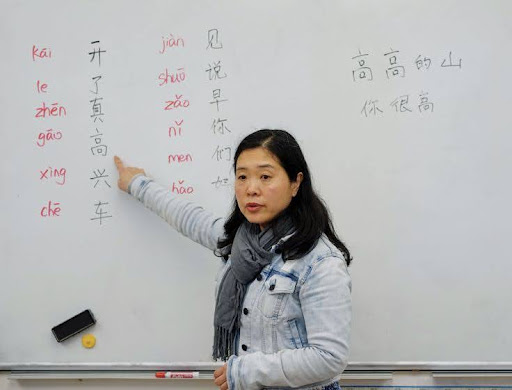 kāi 开
le 了
zhēn 真
gāo 高
xìng 兴
chē 车
jiàn 见
shuō 说
zǎo 早
nǐ 你
men 们
hǎo 好
高高的山
你很高